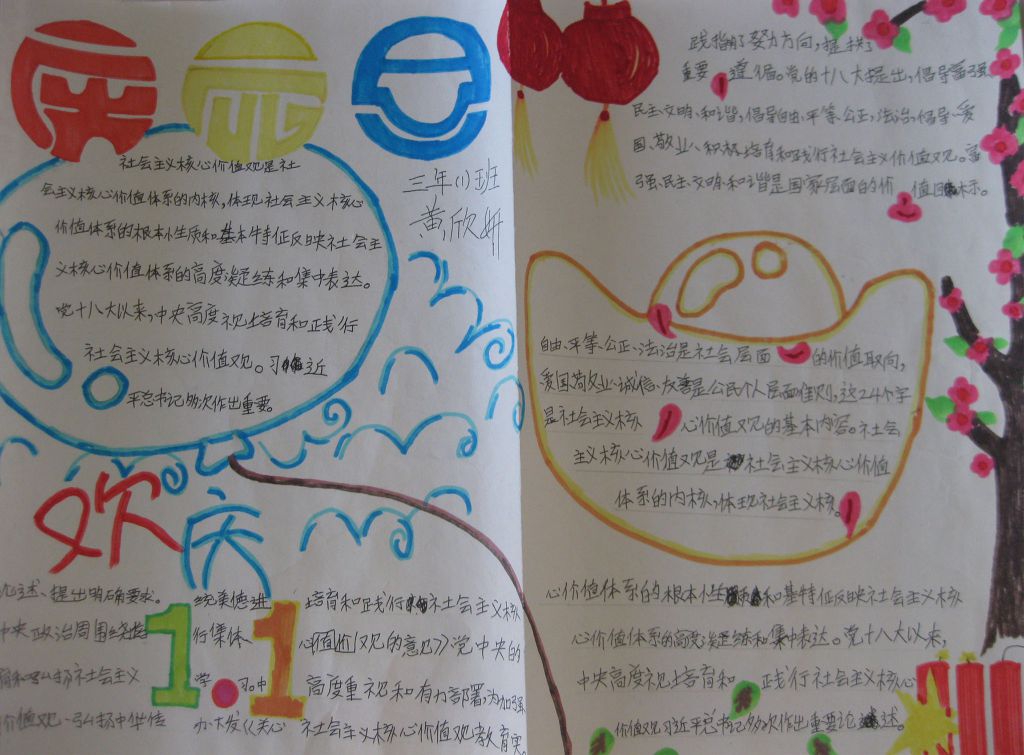 庆元旦
社会主义核心价值观是社
会主义核心价值体系的内核,体现社会主义核心
价值体系的根本性质和基本特征反映社会主
义核心价值体系的高度凝练和集中表达。
党十八大以来,中央高度视培育和践行
社会主义核心价值观。习近
平总书记多次作出重要。
三年(1)班
黄欣妍
欢庆
论述、提出明确要求。
中央政治周围绕培
育和弘扬社会主义
价值观、弘扬中华传
1.1
统美德进
行集体
学习。中
办大发《关心
培育和践行社会主义核
心值价观的意见》党中央的
高度重视和有力部署,为加强
社会主义核心价值观教育实
践指明了努力方向,提拱了
重要遵循。党的十八大提出,倡导富强
民主、文明、和谐,倡导自由、平等、公正、法治,倡导爱
国、敬业、积极培育和践行社会主义价值观。富
强、民主、文明、和谐是国家层面的价值目标。
自由、平等、公正、法治是社会层面的价值取向,
爱国、敬业、诚信、友善是公民个人层面准则,这24个字
是社会主义核心价值观的基本内容。社会
主义核心价值观是社会主义核心价值
体系的内核,体现社会主义核。
心价值体系的根本性和基特征反映社会主义核
心价值体系的高度凝练和集中表达。党十八大以来,
中央高度视培育和践行社会主义核心
价值观习近平总书记多次作出重要论述。